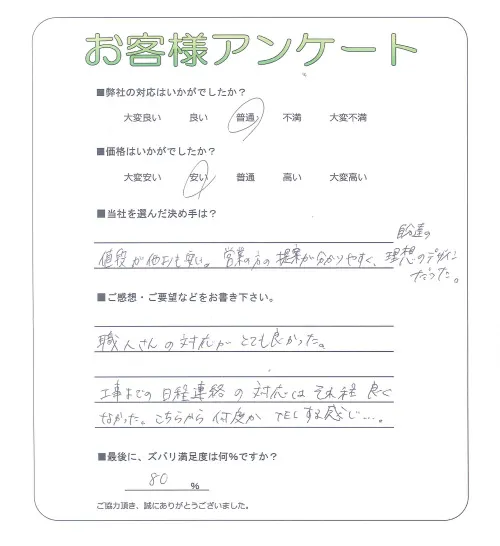 お客様アンケート
■弊社の対応はいかがでしたか？
大変良い 良い 普通 不満 大変不満
■価格はいかがでしたか？
大変安い 安い 普通 高い 大変高い
■当社を選んだ決め手は？
値段が他よりも安い。営業の方の提案が分かりやすく、私達の
理想のデザイン
だった。
■ご感想・ご要望などをお書き下さい。
職人さんの対応がとても良かった。
工事までの日程連絡の対応はそれ程良く
なかった。こちらから何度かTELする感じ…。
■最後に、ズバリ満足度は何％ですか？
80 %
ご協力頂き、誠にありがとうございました。